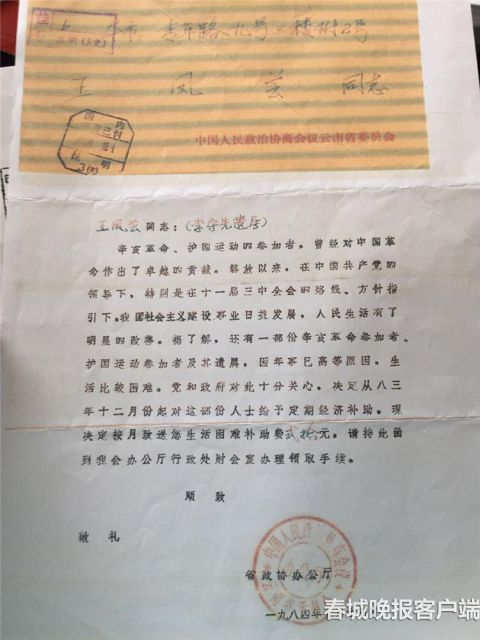 本市 青年路 九号
王凤芸 同志
国内
邮资已付
昆明
中国人民政治协商会议云南省委员会
王凤芸同志：(李守先遗属)
辛亥革命、护国运动的参加者，曾经对中国革
命作出了卓越的贡献。解放以来，在中国共产党的
领导下，特别是在十一届三中全会的路线、方针指
引下，我国社会主义建设事业日益发展，人民生活有了
明显的改善。据了解，还有一部份辛亥革命参加者、
护国运动参加者及其遗属，因年事已高等原因，生
活比较困难。党和政府对此十分关心。决定从八三
年十二月份起对这部份人士给予定期经济补助。现
决定按月致送您生活困难补助费贰拾元。请持此函
到我会办公厅行政处财会室办理领取手续。
顺致
敬礼
省政协办公厅
一九八四年
春城晚报客户端